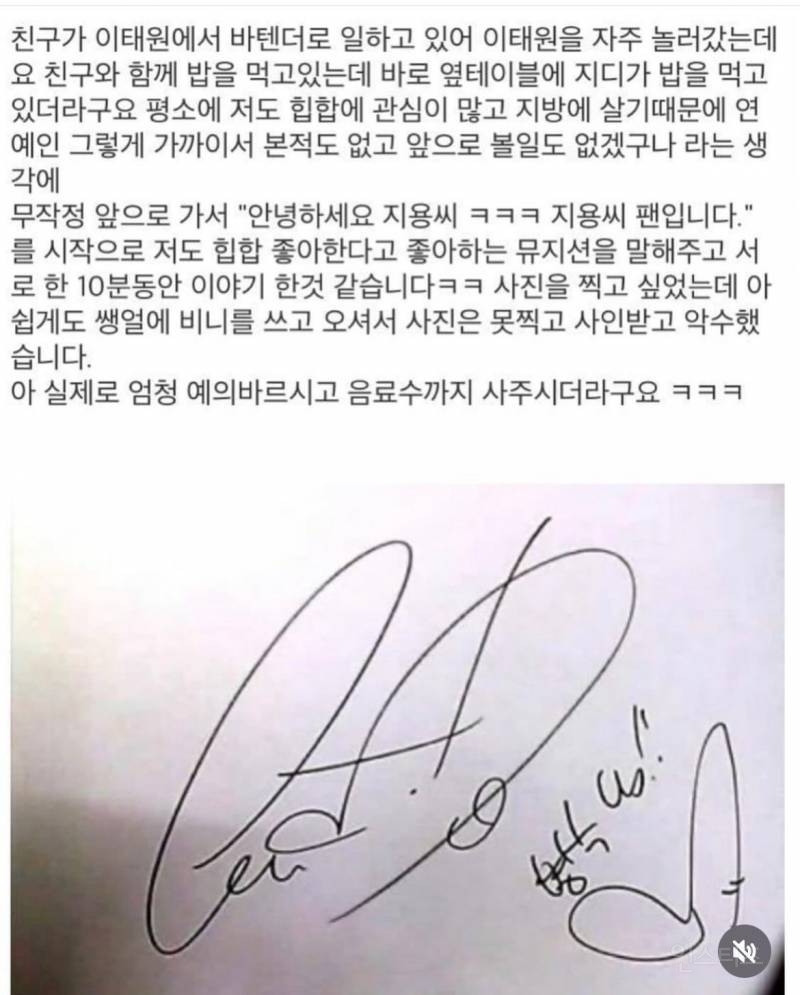 친구가 이태원에서 바텐더로 일하고 있어 이태원을 자주 놀러갔는데
요 친구와 함께 밥을 먹고있는데 바로 옆테이블에 지디가 밥을 먹고
있더라구요 평소에 저도 힙합에 관심이 많고 지방에 살기때문에 연
예인 그렇게 가까이서 본적도 없고 앞으로 볼일도 없겠구나 라는 생
각에
무작정 앞으로 가서 "안녕하세요 지용씨 ㅋㅋㅋ 지용씨 팬입니다."
를 시작으로 저도 힙합 좋아한다고 좋아하는 뮤지션을 말해주고 서
로 한 10분동안 이야기 한것 같습니다ㅋㅋ 사진을 찍고 싶었는데 아
쉽게도 쌩얼에 비니를 쓰고 오셔서 사진은 못찍고 사인받고 악수했
습니다.
아 실제로 엄청 예의바르시고 음료수까지 사주시더라구요 ㅋㅋㅋ